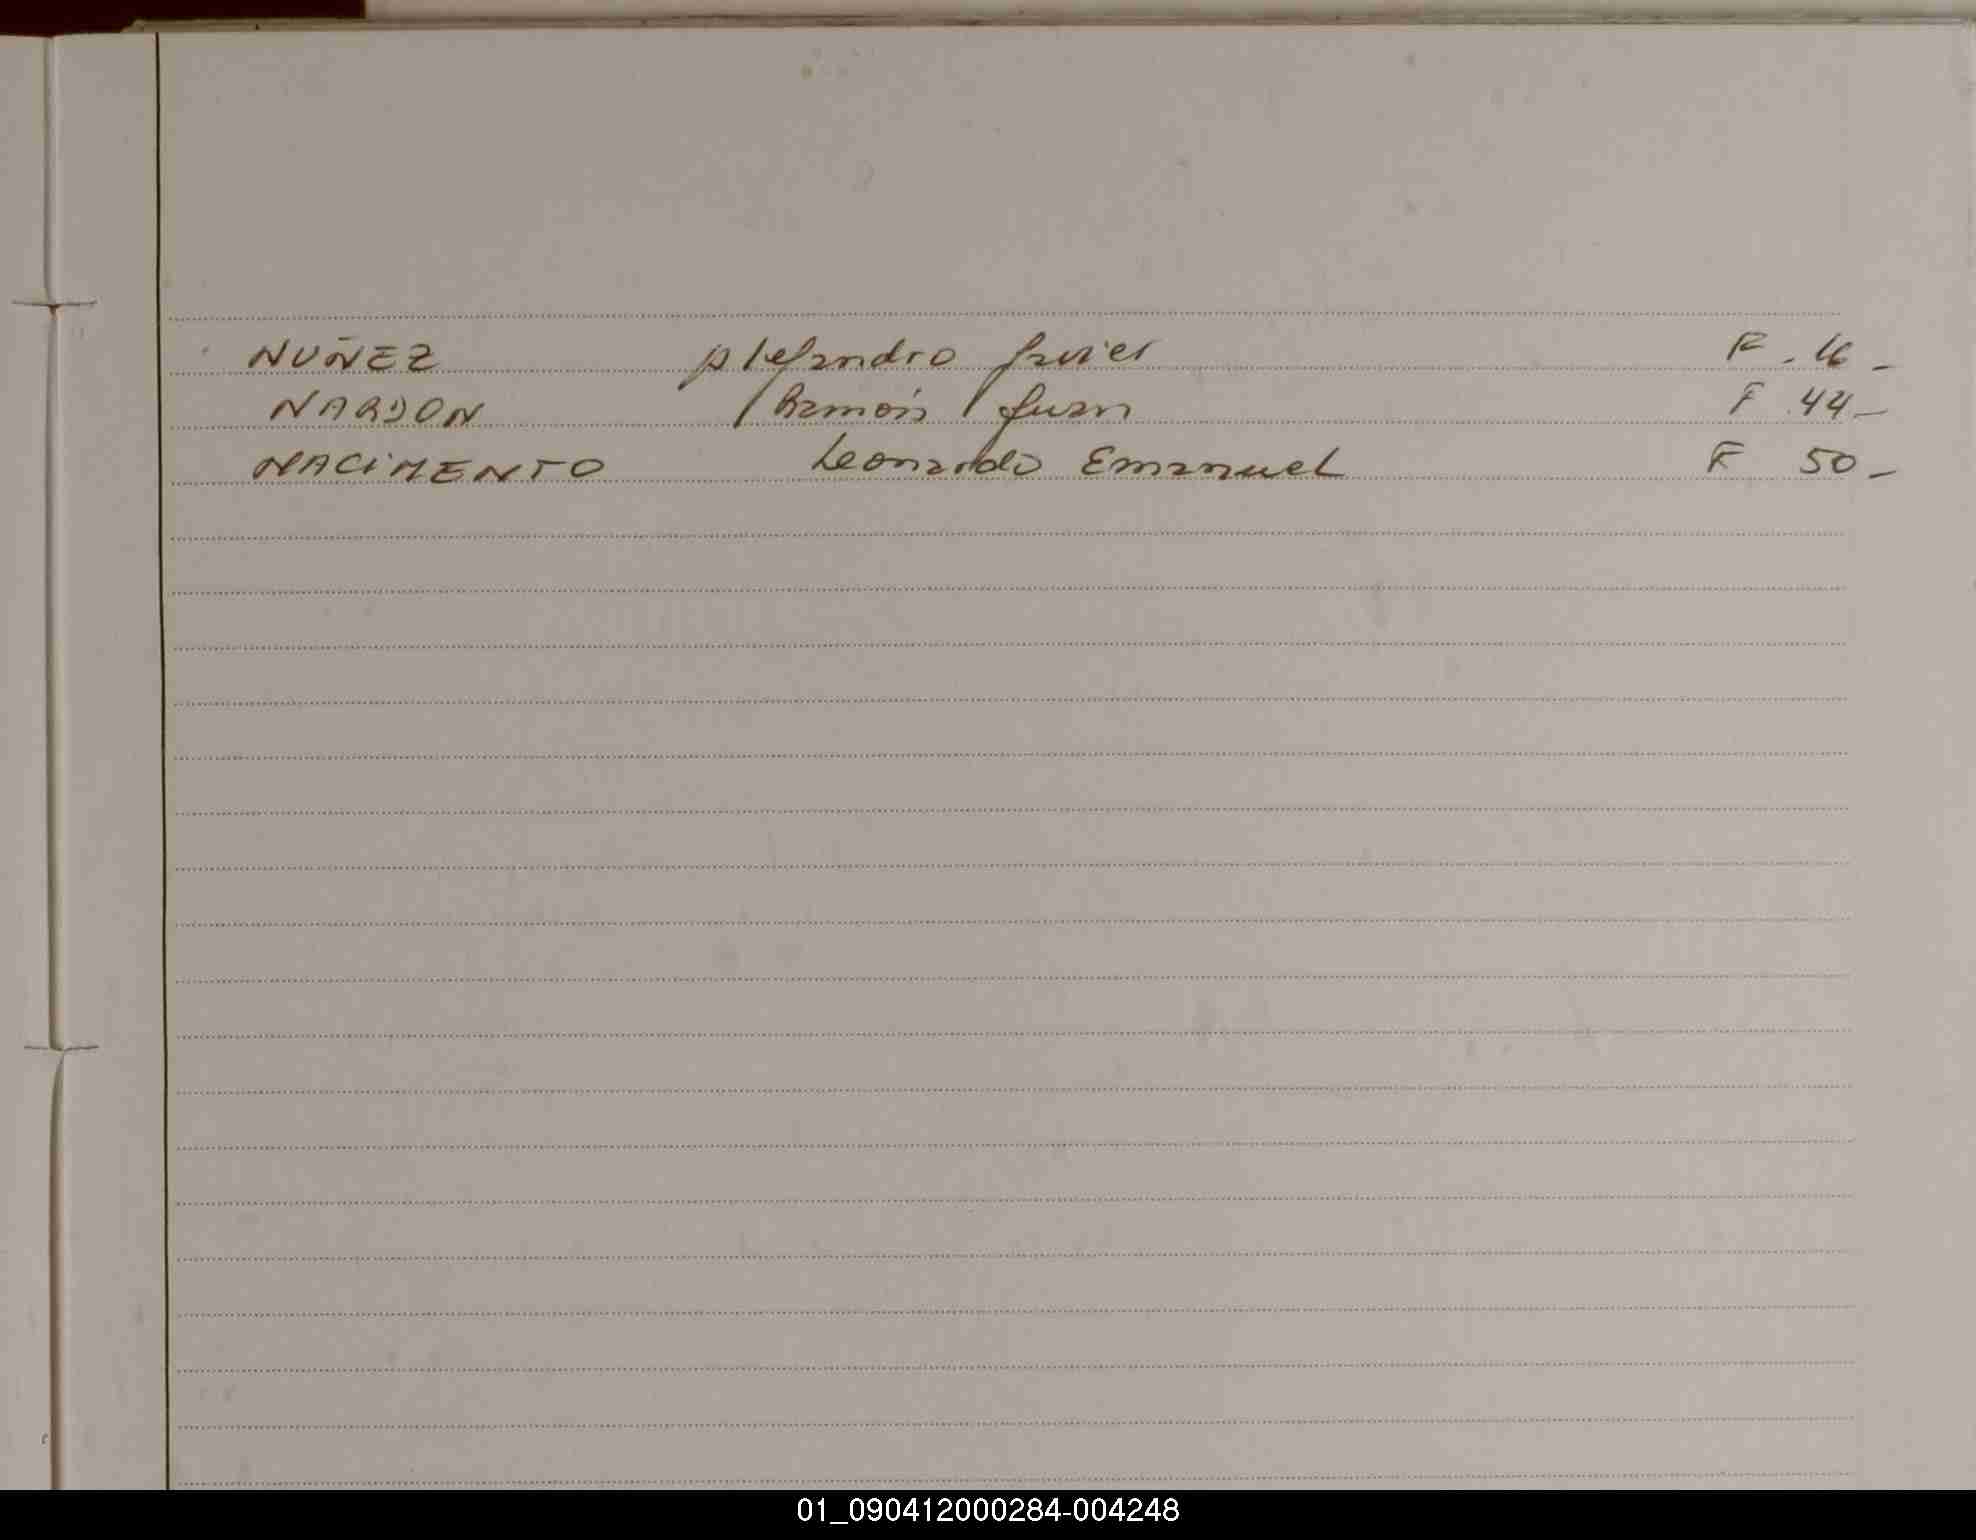 NUÑEZ Alejandro Javier F. 16 -
NARDON Ramón Juan F 44 -
NACIMENTO Leonardo Emanuel F 50 -
01_090412000284-004248